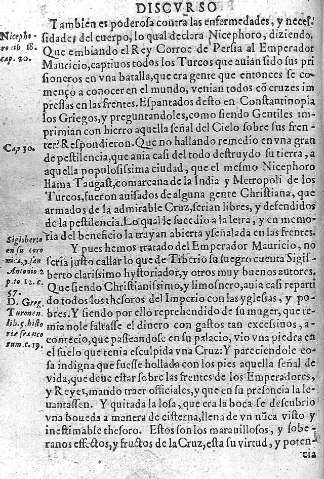 DISCVRSO
Tambien es poderosa contra las enfermedades, y necessidades
Nicephoro
lib 18.
cap. 20.
del cuerpo, lo qual declara Nicephoro, diziendo,
Que embiando el Rey Corroe de Persia al Emperador
Mauricio, captiuos todos los Turcos que auian sido sus prisioneros
en vna batalla, que era gente que entonces se començo
a conocer en el mundo, venian todos cō cruzes impressas
en las frentes. Espantados desto en Constantinopla
los Griegos, y preguntandoles, como siendo Gentiles imprimian
con hierro aquella señal del Cielo sobre sus frentes?
Cap 30.
Respondieron. Que no hallando remedio en vna gran
de pestilencia, que auia casi del todo destruydo su tierra, a
aquella populosissima ciudad, que el mesmo Nicephoro
llama Taugast, comarcana de la India y Metropoli de los
Turcos, fueron auisados de alguna gente Christiana, que
armados de la admirable Cruz, serian libres, y defendidos
de la pestilencia. Lo qual le sucedio a la letra, y en memoria
del beneficio la trayan abierta y señalada en las frentes.
Sigiberto
en su coronica,
y san
Antonio 2
p. to 12. c.
57.
D. Greg
Turonen
lib. 5. histo
rie franco
rum c. 19.
Y pues hemos tratado del Emperador Mauricio, no
seria justo callar lo que de Tiberio su suegro cuenta Sigisberto
clarissimo hystoriador, y otros muy buenos autores.
Que siendo Christianissimo, y limosnero, auia casi repartido
todos los thesoros del Imperio con las yglesias, y pobres.
Y siendo por ello reprehendido de su muger, que temia
no le faltasse el dinero con gastos tan excesinos, acontecio,
que paseandose en su palacio, vio vna piedra en
el suelo que tenia esculpida vna Cruz: Y pareciendole cosa
indigna que fuesse hollado con los pies aquella señal de
vida, que deue estar sobre las frentes de los Emperadores,
y Reyes, mando traer officiales, y que en su presencia la leuantassen.
Y quitada la losa, que era la boca, se descubrio
vna boueda a manera de cisterna, llena de vn nūca visto y
inestimable thesoro. Estos son los marauillosos, y soberanos
effectos, y fructos de la Cruz, esta su virtud, y poten-
cia